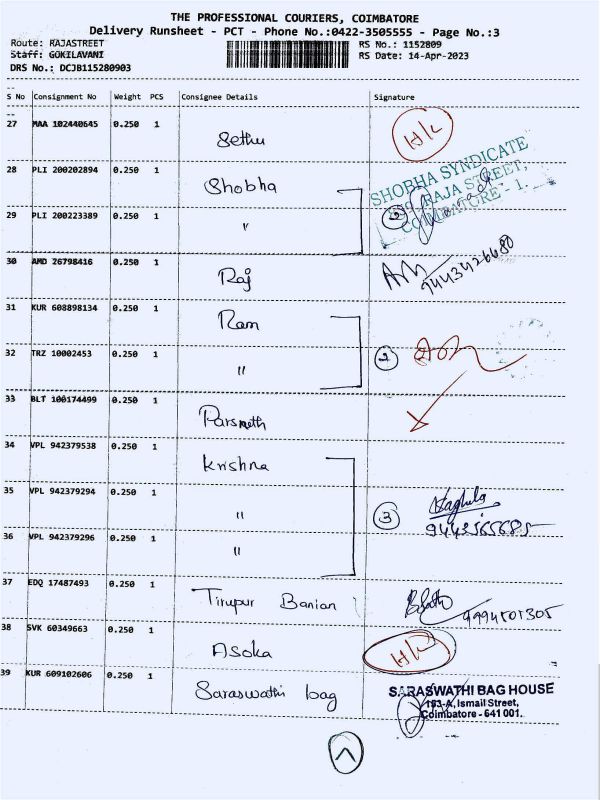 THE PROFESSIONAL COURIERS, COIMBATORE
Delivery Runsheet - PCT - Phone No.:0422-3505555 - Page No.:3
Route: RAJASTREET RS No.: 1152809
Staff: GOKILAVANI RS Date: 14-Apr-2023
DRS No.: DCJB115280903
S No Consignment No Weight PCS Consignee Details Signature
27 MAA 102440645 0.250 1 Sethu
28 PLI 200202894 0.250 1 Shobha
SHOBHA SYNDICATE
RAJA STREET,
COIMBATORE - 1.
29 PLI 200223389 0.250 1 〃 2
30 AMD 26798416 0.250 1 Raj
31 KUR 608898134 0.250 1 Ram
32 TRZ 10002453 0.250 1 〃 2
33 BLT 100174499 0.250 1 Parsneth
34 VPL 942379538 0.250 1 Krishna
35 VPL 942379294 0.250 1 〃 3
36 VPL 942379296 0.250 1 〃
37 EDQ 17487493 0.250 1 Tirupur Banian 4994501305
38 SVK 60349663 0.250 1 Asoka
39 KUR 609102606 0.250 1 Saraswathi bag
SARASWATHI BAG HOUSE
193-A, Ismail Street,
Coimbatore - 641 001.